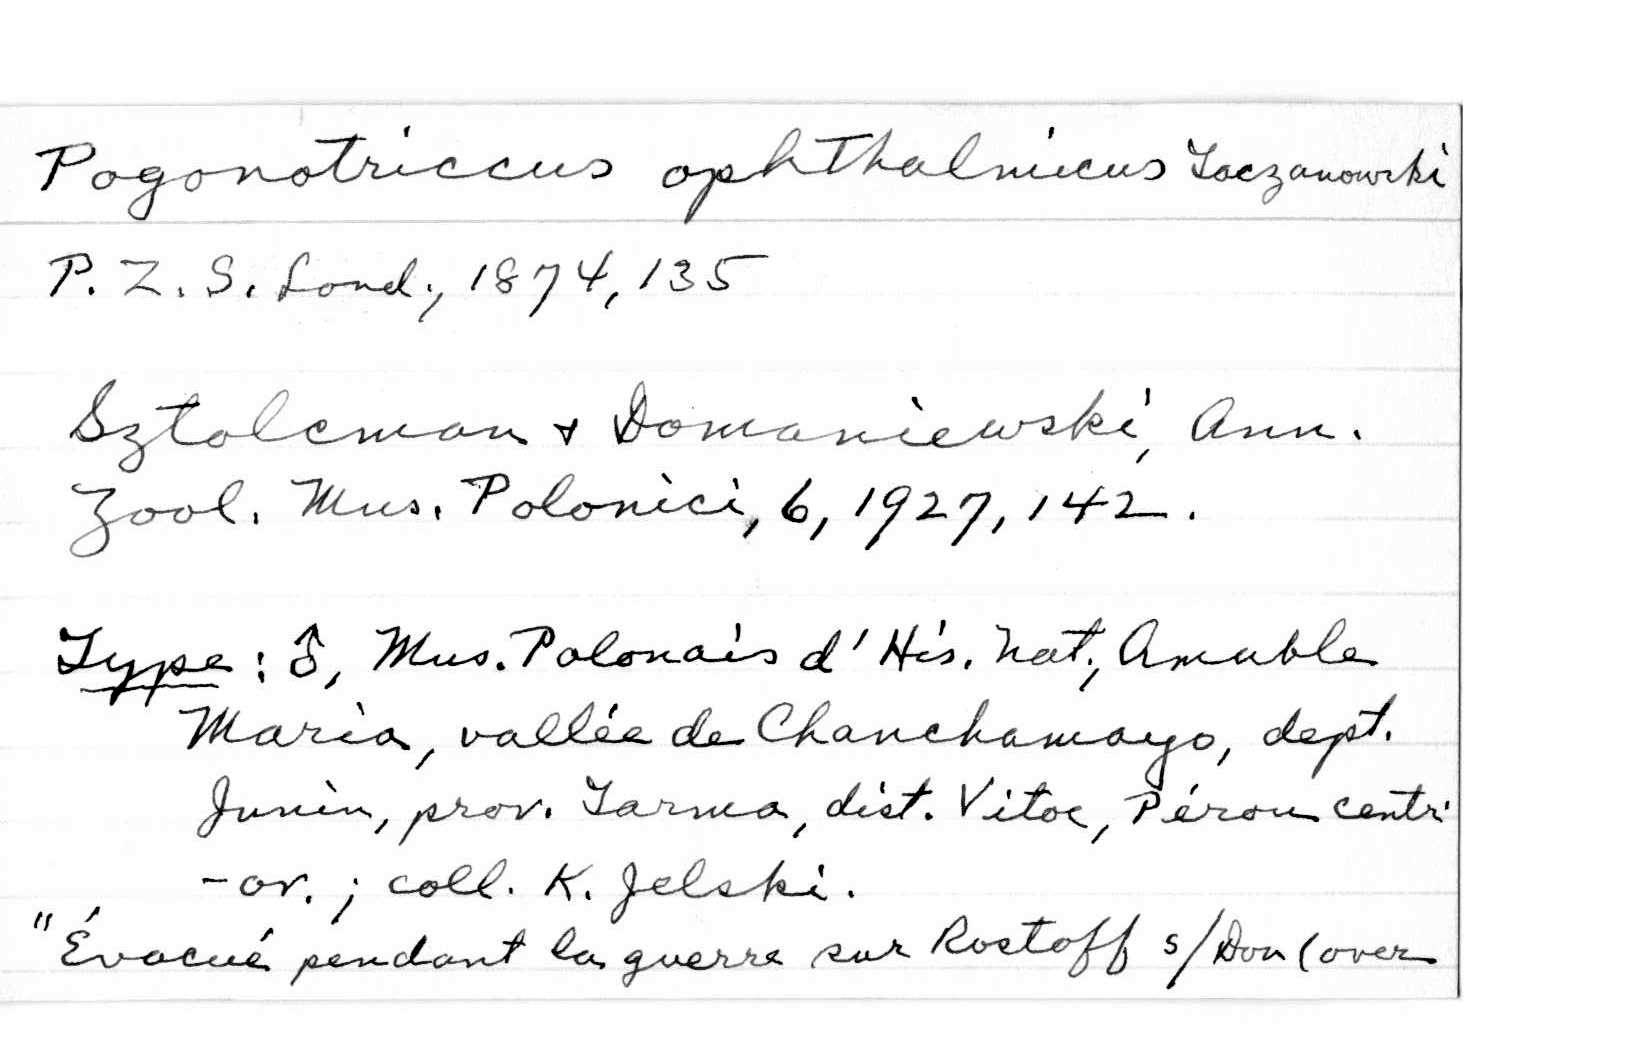 Pogonotriccus ophthalmicus Taczanowski
P. Z. S. Lond., 1874, 135
Sztolcman & Domaniewski, Ann.
Zool. Mus. Polonici, 6, 1927, 142.
Type: ♂, Mus. Polonais d'His. Nat., Amable
Maria, vallée de Chanchamayo, dept.
Junin, prov. Tarma, dist. Vitoc, Pérou centr.
-or. ; coll. K. Jelski.
"Évacué pendant la guerre sur Rostoff s/Don (over